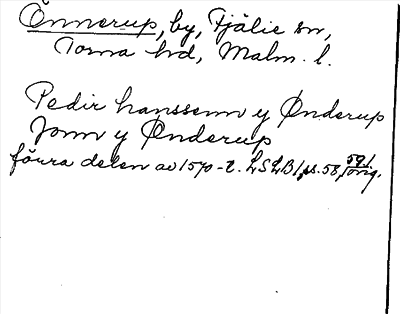 Önnerup, by, Fjälie sn,
Torna hd, Malm. l.
Pedir hanssenn y Ønderup
Jonn y Ønderup
förra delen av 1570-t. LSLB 1, ps. 58, 591 orig.